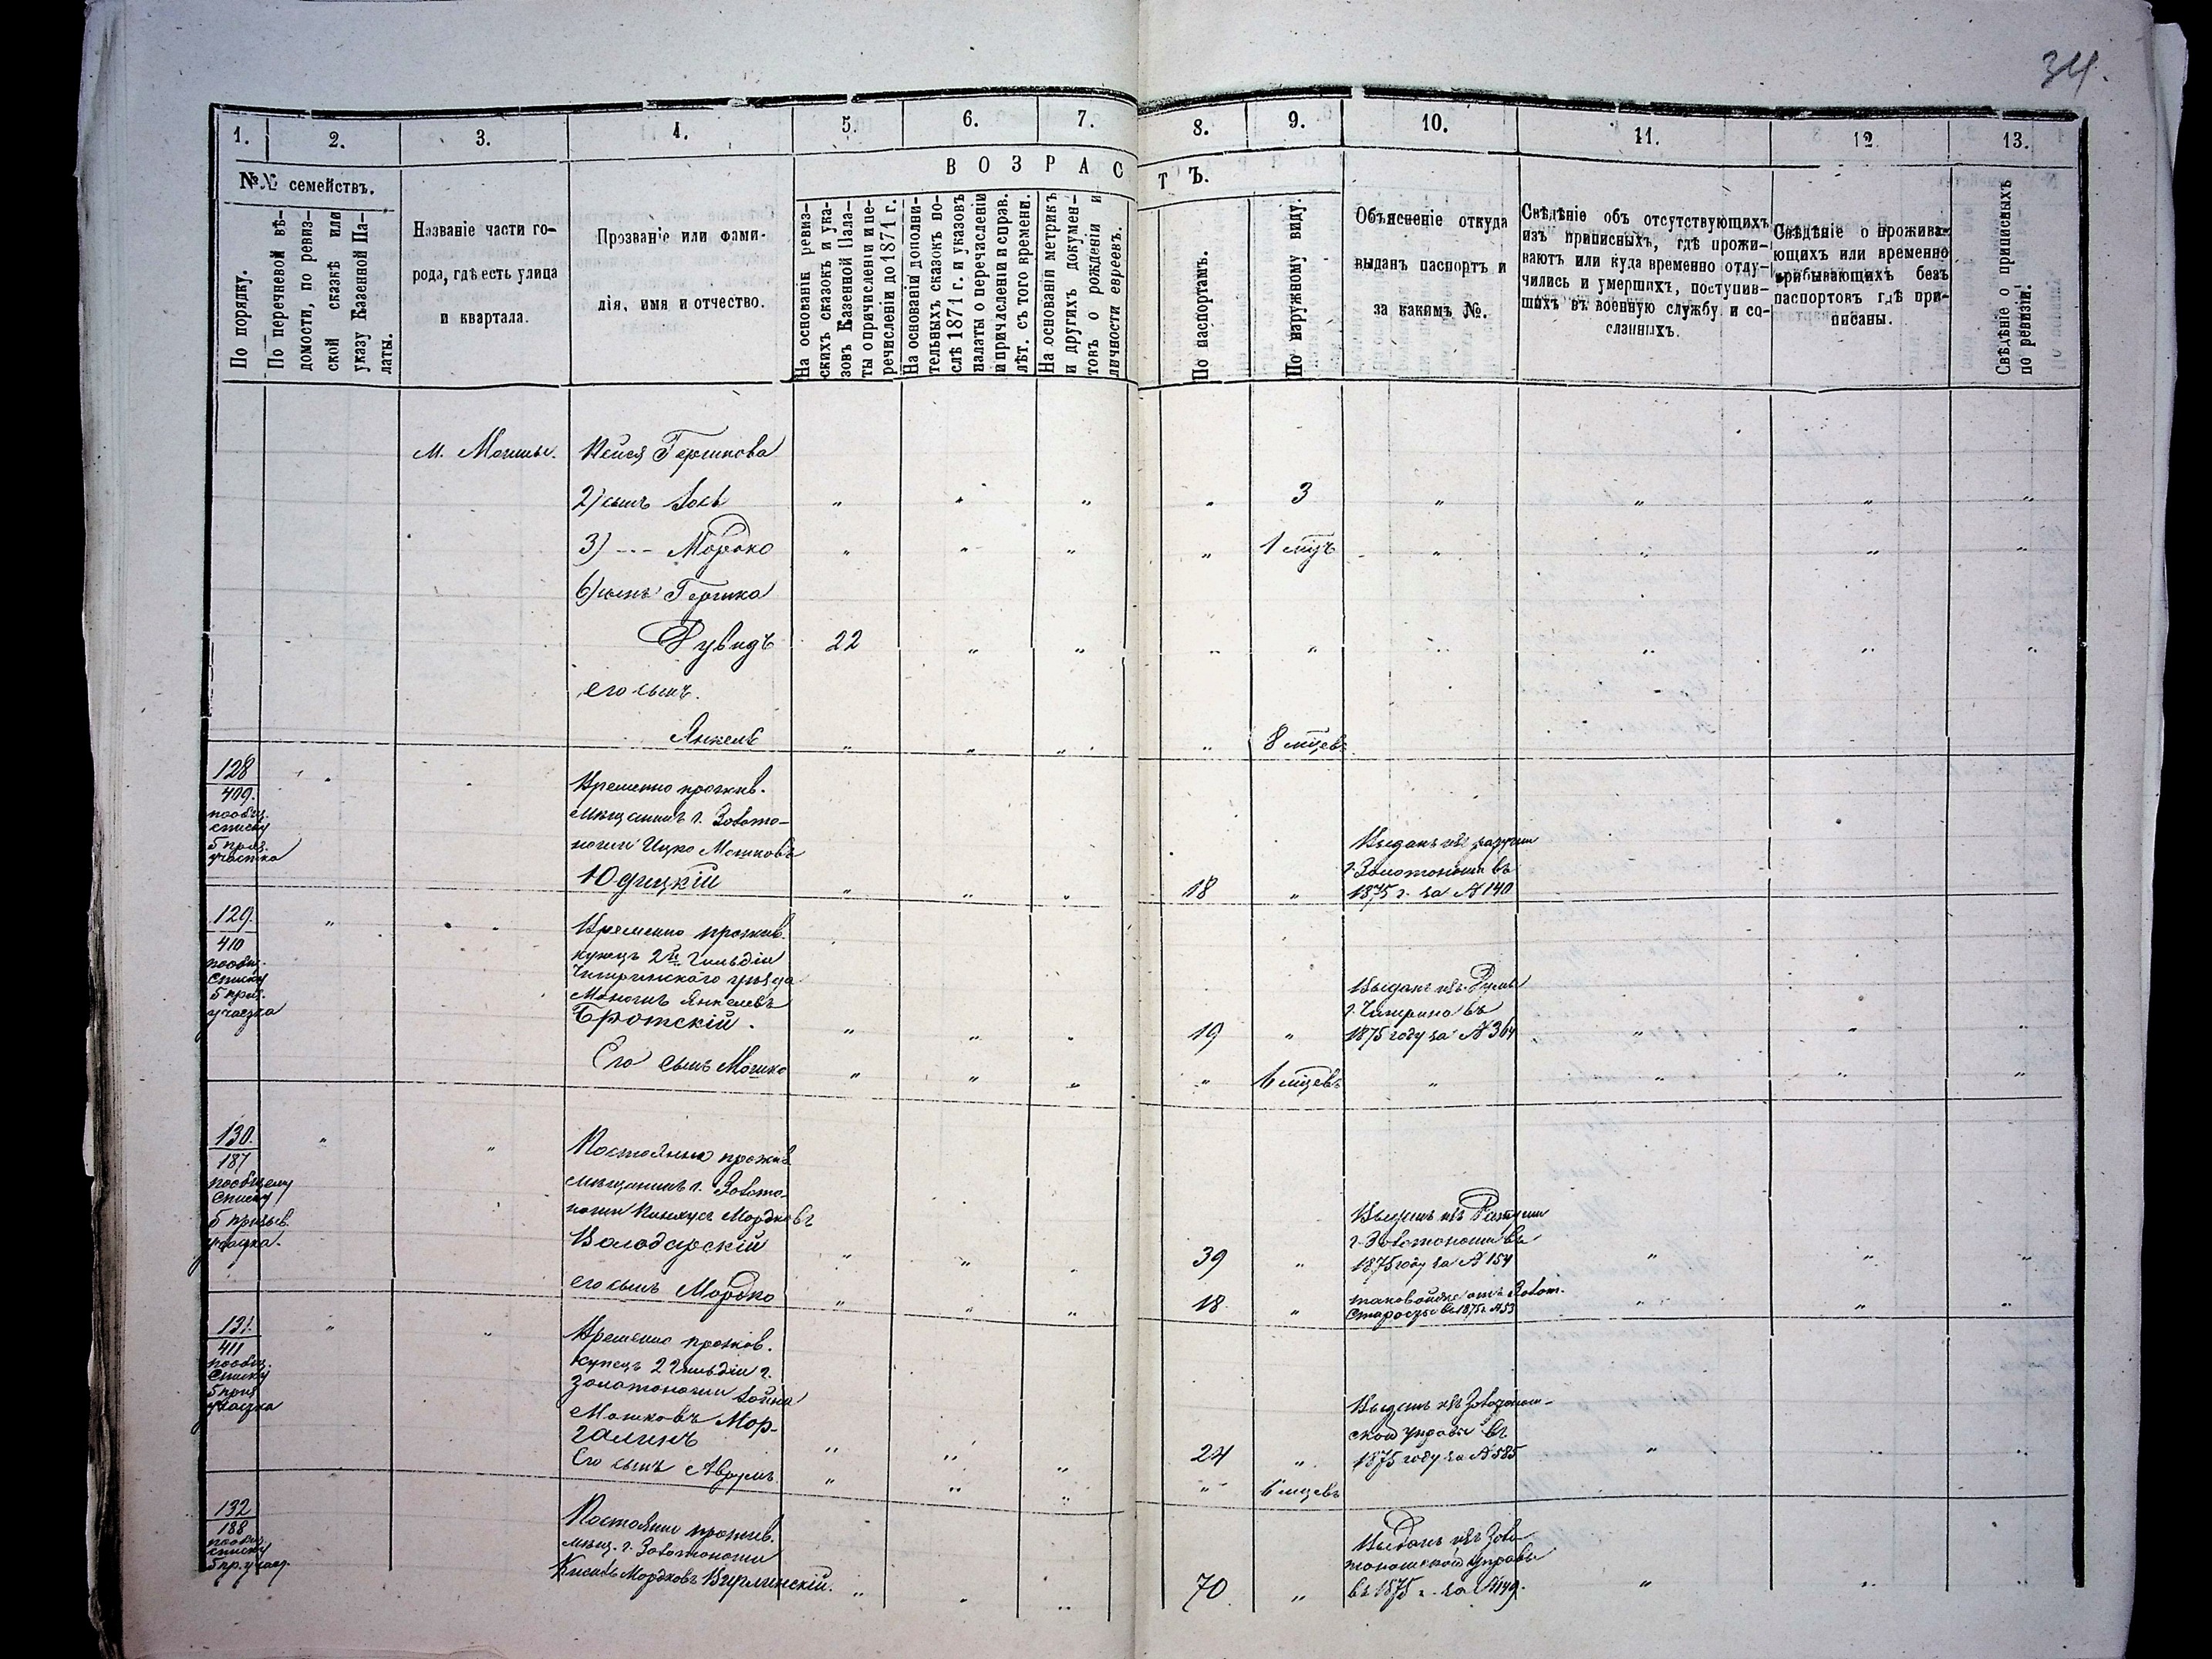 34.
1. 2. 3. 4. 5. 6. 7. 8. 9. 10. 11. 12. 13.
№№ семействъ.
По порядку.
По перечневой вѣ-
домости, по ревиз-
ской сказкѣ или
указу Казенной Па-
латы.
Названіе части го-
рода, гдѣ есть улица
и квартала.
Прозваніе или фами-
лія, имя и отчество.
ВОЗРАСТЪ.
На основаніи ревиз-
скихъ сказокъ и ука-
зовъ Казенной Пала-
ты о причисленіи и пе-
речисленіи до 1871 г.
На основаніи дополни-
тельныхъ сказокъ по-
слѣ 1871 г. и указовъ
палаты о перечисленіи
и причисленіи и справ.
лѣт. съ того времени.
На основаніи метрикъ
и другихъ докумен-
товъ о рожденіи и
личности евреевъ.
По паспортамъ.
По наружному виду.
Объясненіе откуда
выданъ паспортъ и
за какимъ №.
Свѣдѣніе объ отсутствующихъ
изъ приписныхъ, гдѣ прожи-
ваютъ или куда временно отлу-
чились и умершихъ, поступив-
шихъ въ военную службу и со-
сланныхъ.
Свѣдѣніе о прожива-
ющихъ или временно
прибывающихъ безъ
паспортовъ гдѣ при-
писаны.
Свѣдѣніе о приписныхъ
по ревизіи.
Гершкова
2) сынъ " " " " 3 " " " "
3) --- Мордко " " " " 1 мцъ " " " "
6) сынъ Гершка
Рувидъ 22 " " " " " " " "
его сынъ.
Янкель " " " " 8 мцевъ
128
409.
по общ.
списку
5 приз.
участка
Временно прожив.
мѣщанинъ г. Золото-
ноши Ицко Мошковъ
Юдицкій " " " 18 "
Выданъ изъ ратуши
г. Золотоноши въ
1875 г. за № 140
129.
410
по общ.
списку
5 приз.
участка
Временно прожив.
купецъ 2й гильдіи
Чигиринскаго уѣзда
Янкелевъ
Бротскій. " " " 19 "
Выданъ изъ Думы
г. Чигирина въ
1875 году за № 364 " " "
Его сынъ Мошко " " " " 6 мцевъ " " " "
130.
187
по общему
списку
5 призыв.
участка.
Постоянно прожив
мѣщанинъ г. Золото-
ноши Пинхусъ Мордковъ
Володарскій " " " 39 "
Выданъ изъ Ратуши
г. Золотоноши въ
1875 году за № 154 " " "
его сынъ Мордко " " " 18 "
таковой же отъ Золот.
Старосты въ 1875 г. № 53 " " "
131.
411
по общ.
списку
5 приз
участка
Временно прожив.
купецъ 2 гильдіи г.
Золотоноши
Мошковъ Мор-
галинъ " " " 24 "
Выданъ изъ Золотонош-
ской управы въ
1875 году за № 585 " " "
Его сынъ Аврумъ " " " " 6 мцевъ
132
188
по общ.
списку
5 пр. участ.
Постоянно прожив.
мѣщ. г. Золотоноши
Мордковъ Бирлинскій. " " " 70 "
Выданъ изъ Золо-
тоношской управы
въ 1875 г. за № 149. " " "